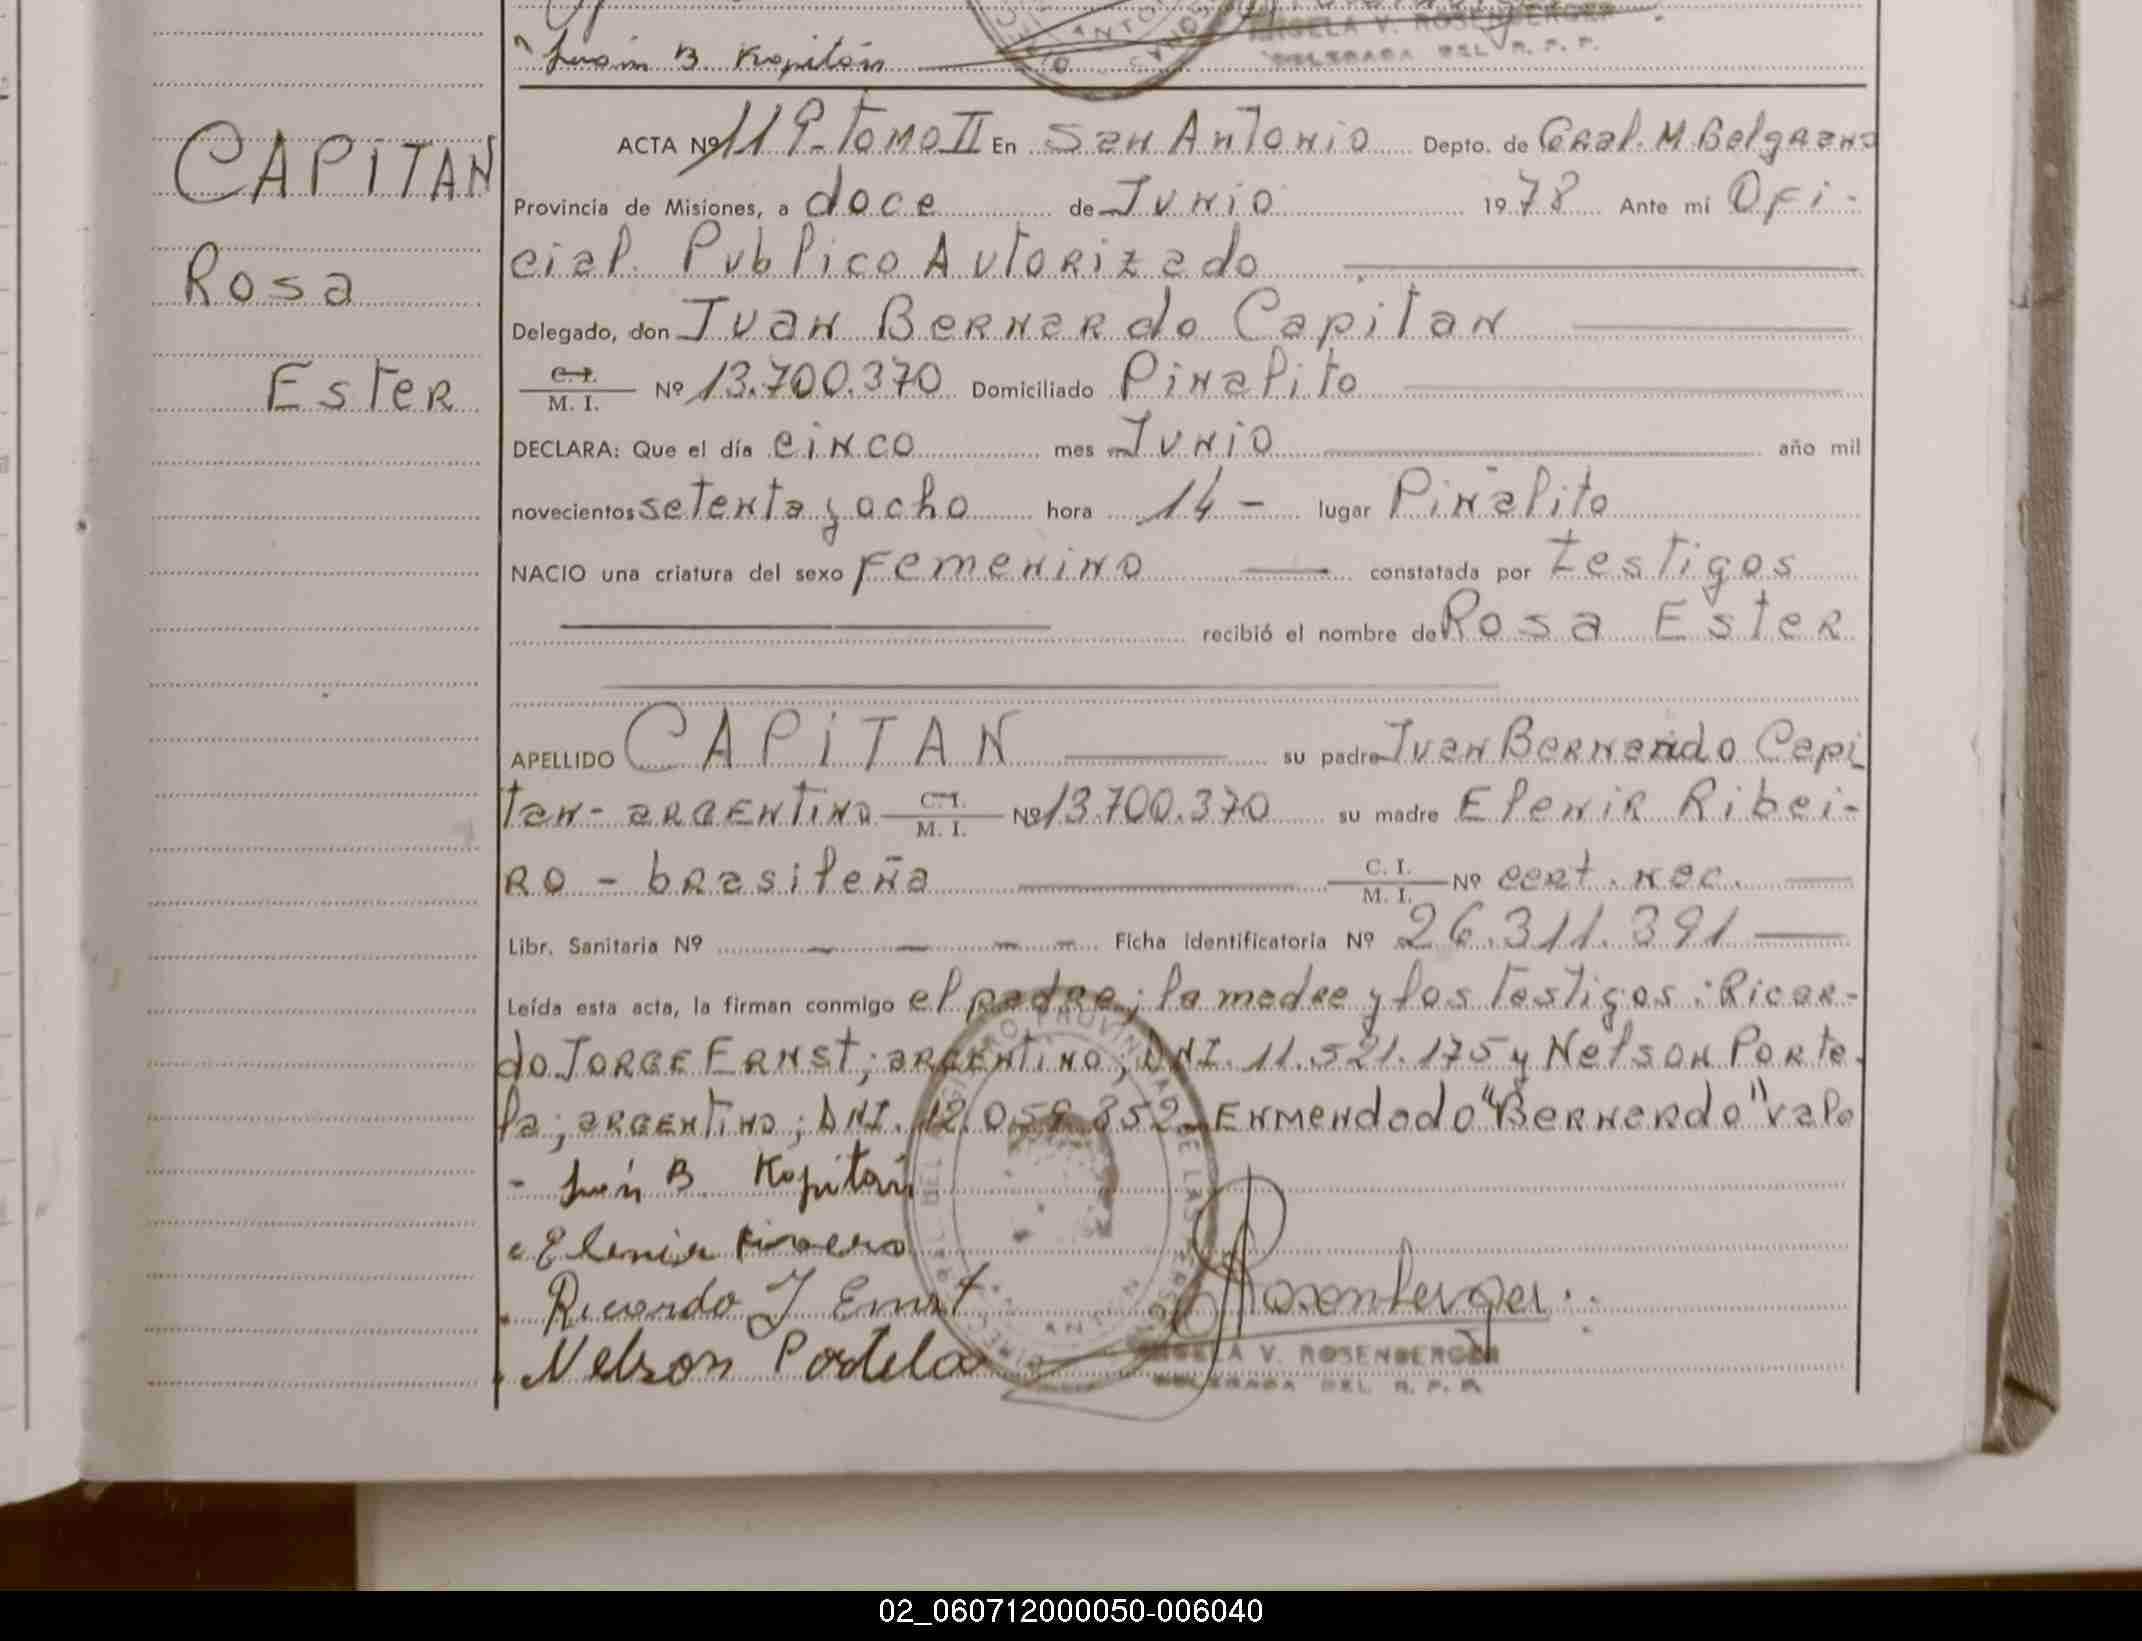 Juán B Kopitán
ANGELA V. ROSENBERGER
DELEGADA DEL R. P. P.
CAPITAN
Rosa
Ester
ACTA Nº 119-Tomo II En San Antonio Depto. de Gral. M. Belgrano
Provincia de Misiones, a doce de Junio 1978 Ante mí Ofi-
cial Publico Autorizado
Delegado, don Juan Bernardo Capitan
C. I. / M. I. Nº 13.700.370 Domiciliado Piñalito
DECLARA: Que el día cinco mes Junio año mil
novecientos setenta y ocho hora 14 - lugar Piñalito
NACIO una criatura del sexo Femenino constatada por testigos
recibió el nombre de Rosa Ester
APELLIDO CAPITAN su padre Juan Bernardo Capi
tan - argentino C. I. / M. I. Nº 13.700.370 su madre Elenir Ribei-
ro - brasileña C. I. / M. I. Nº cert. nac.
Libr. Sanitaria Nº Ficha identificatoria Nº 26.311.391
Leída esta acta, la firman conmigo el padre; la madre y los testigos: Ricar-
do Jorge Ernst; argentino; DNI. 11.521.175 y Nelson Porte
la; argentino; DNI. 12.058.852 - Enmendado "Bernardo" vale
- Juán B. Kopitán
Elenir
Ricardo J Ernst
Rosenberger
Nelson Portela
ANGELA V. ROSENBERGER
DELEGADA DEL R. P. P.
02_060712000050-006040